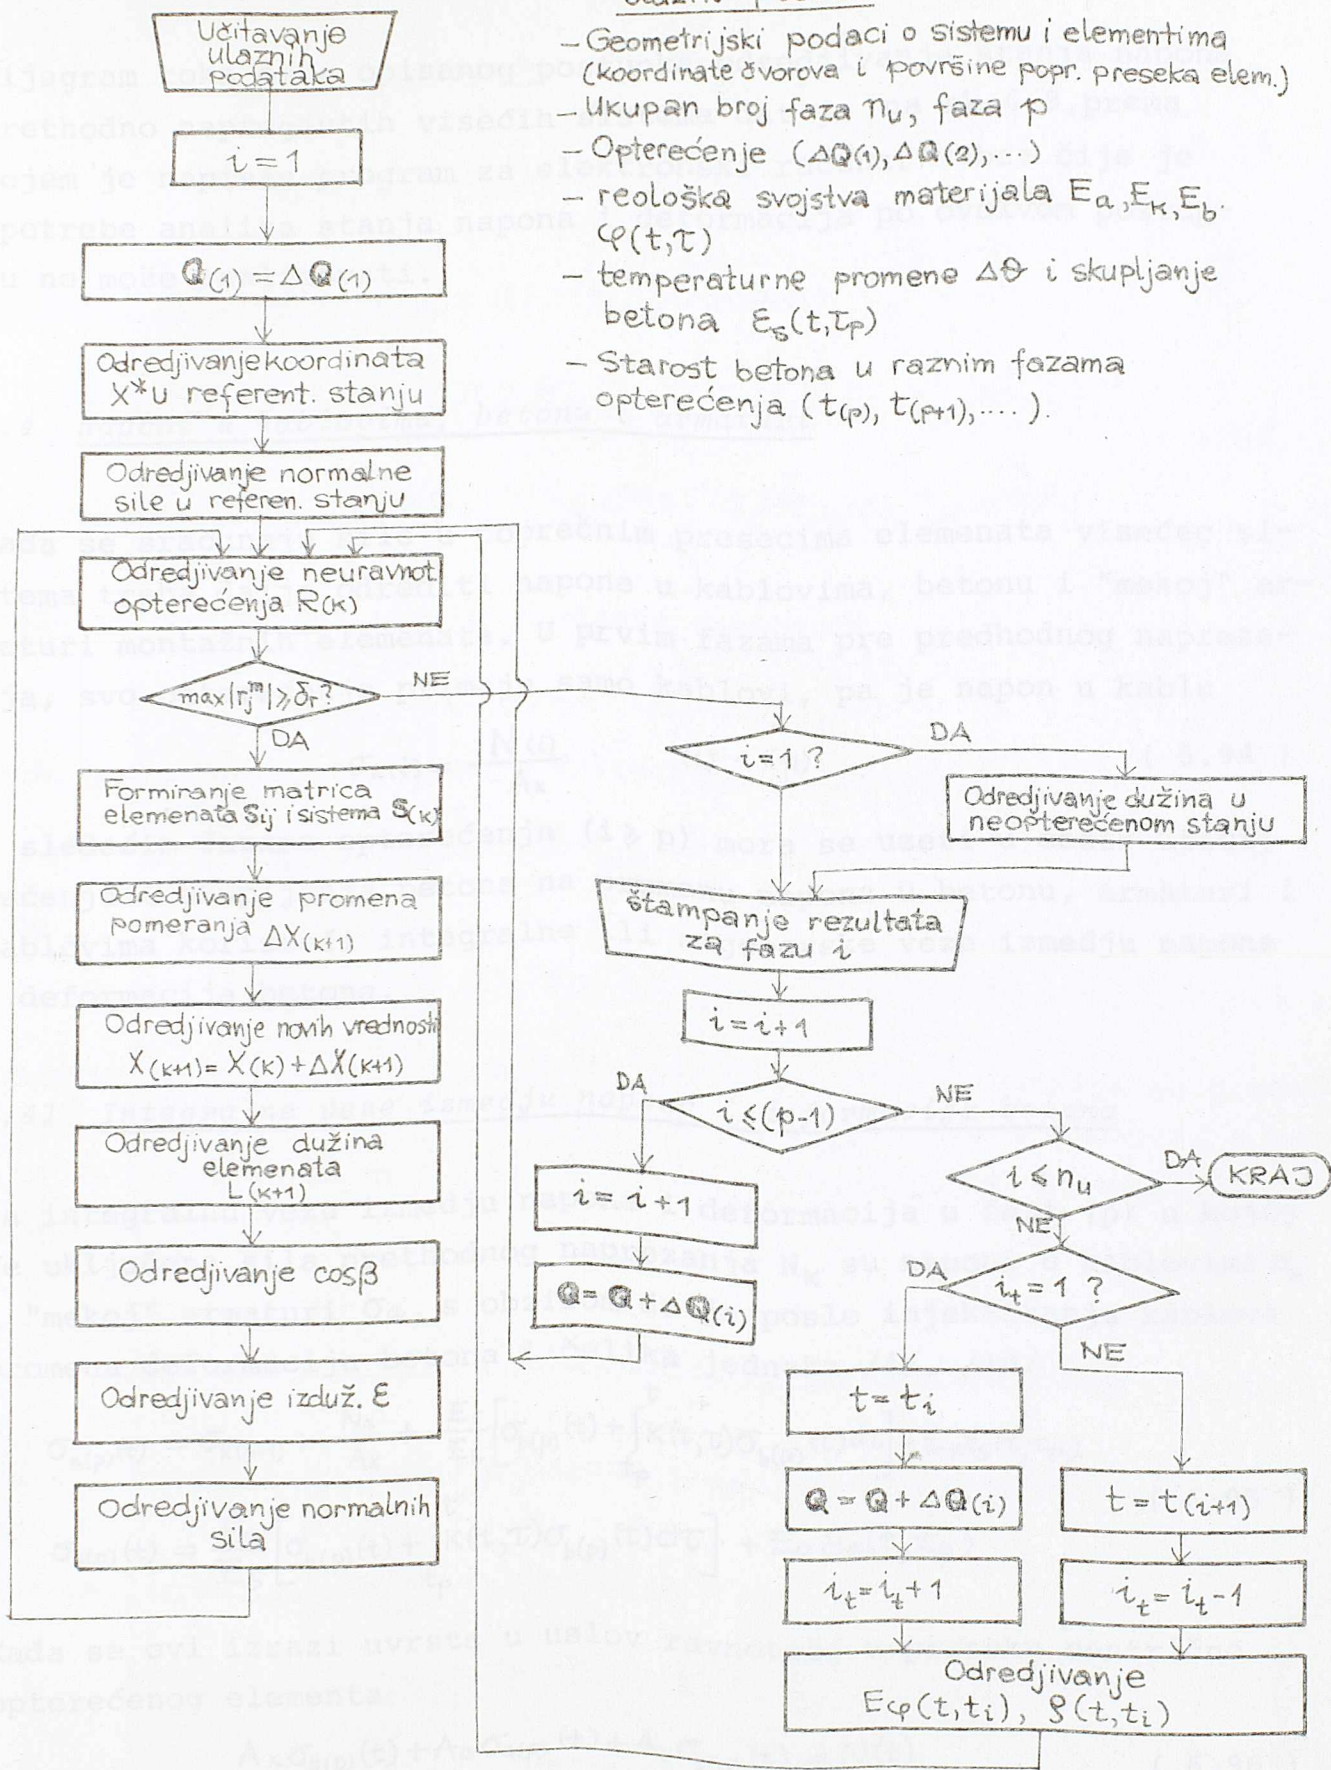 Učitavanje
ulaznih
podataka
i=1
Q(1)=ΔQ(1)
Odredjivanje koordinata
X* u referent. stanju
Odredjivanje normalne
sile u referen. stanju
Odredjivanje neuravnot
opterećenja R(k)
max|rjᵐ|≥δr?
NE
DA
Formiranje matrica
elemenata Sij i sistema S(k)
Odredjivanje promena
pomeranja ΔX(k+1)
Odredjivanje novih vrednosti
X(k+1)=X(k)+ΔX(k+1)
Odredjivanje dužina
elemenata
L(k+1)
Odredjivanje cosβ
Odredjivanje izduž. ε
Odredjivanje normalnih
sila
– Geometrijski podaci o sistemu i elementima
(koordinate čvorova i površine popr. preseka elem.)
– Ukupan broj faza nu, faza p
– Opterećenje (ΔQ(1),ΔQ(2),...)
– reološka svojstva materijala Ea,Eк,Eb.
φ(t,τ)
– temperaturne promene Δθ i skupljanje
betona εs(t,τp)
– Starost betona u raznim fazama
opterećenja (t(p), t(p+1),....).
i=1?
DA
Odredjivanje dužina u
neopterećenom stanju
štampanje rezultata
za fazu i
i=i+1
DA
i≤(p-1)
NE
i=i+1
Q=Q+ΔQ(i)
i≤nu
DA
KRAJ
NE
DA
it=1?
NE
t=ti
Q=Q+ΔQ(i)
it=it+1
t=t(i+1)
it=it-1
Odredjivanje
Eφ(t,ti), ρ(t,ti)